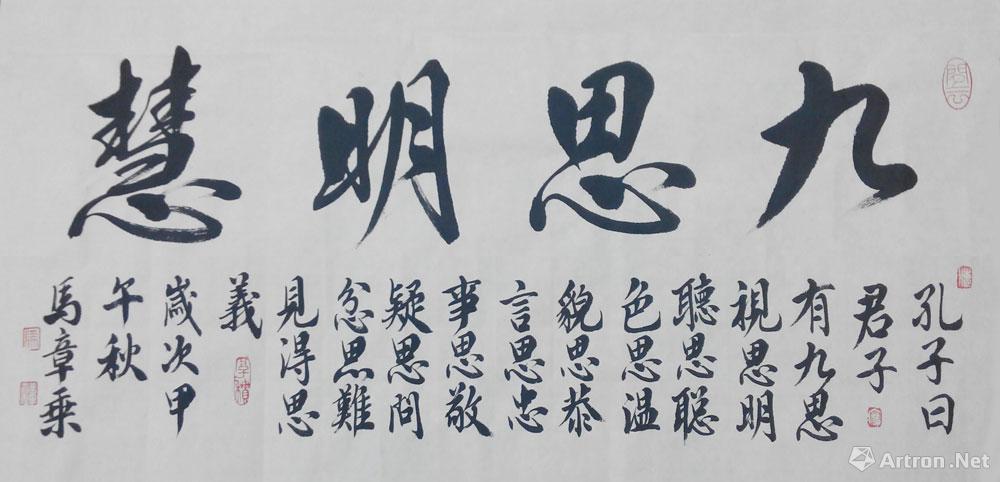 九思明慧
孔子曰
君子
有九思
視思明
聽思聰
色思温
貌思恭
言思忠
事思敬
疑思問
忿思難
見得思
義
歲次甲
午秋
馬章乗
Artron.Net